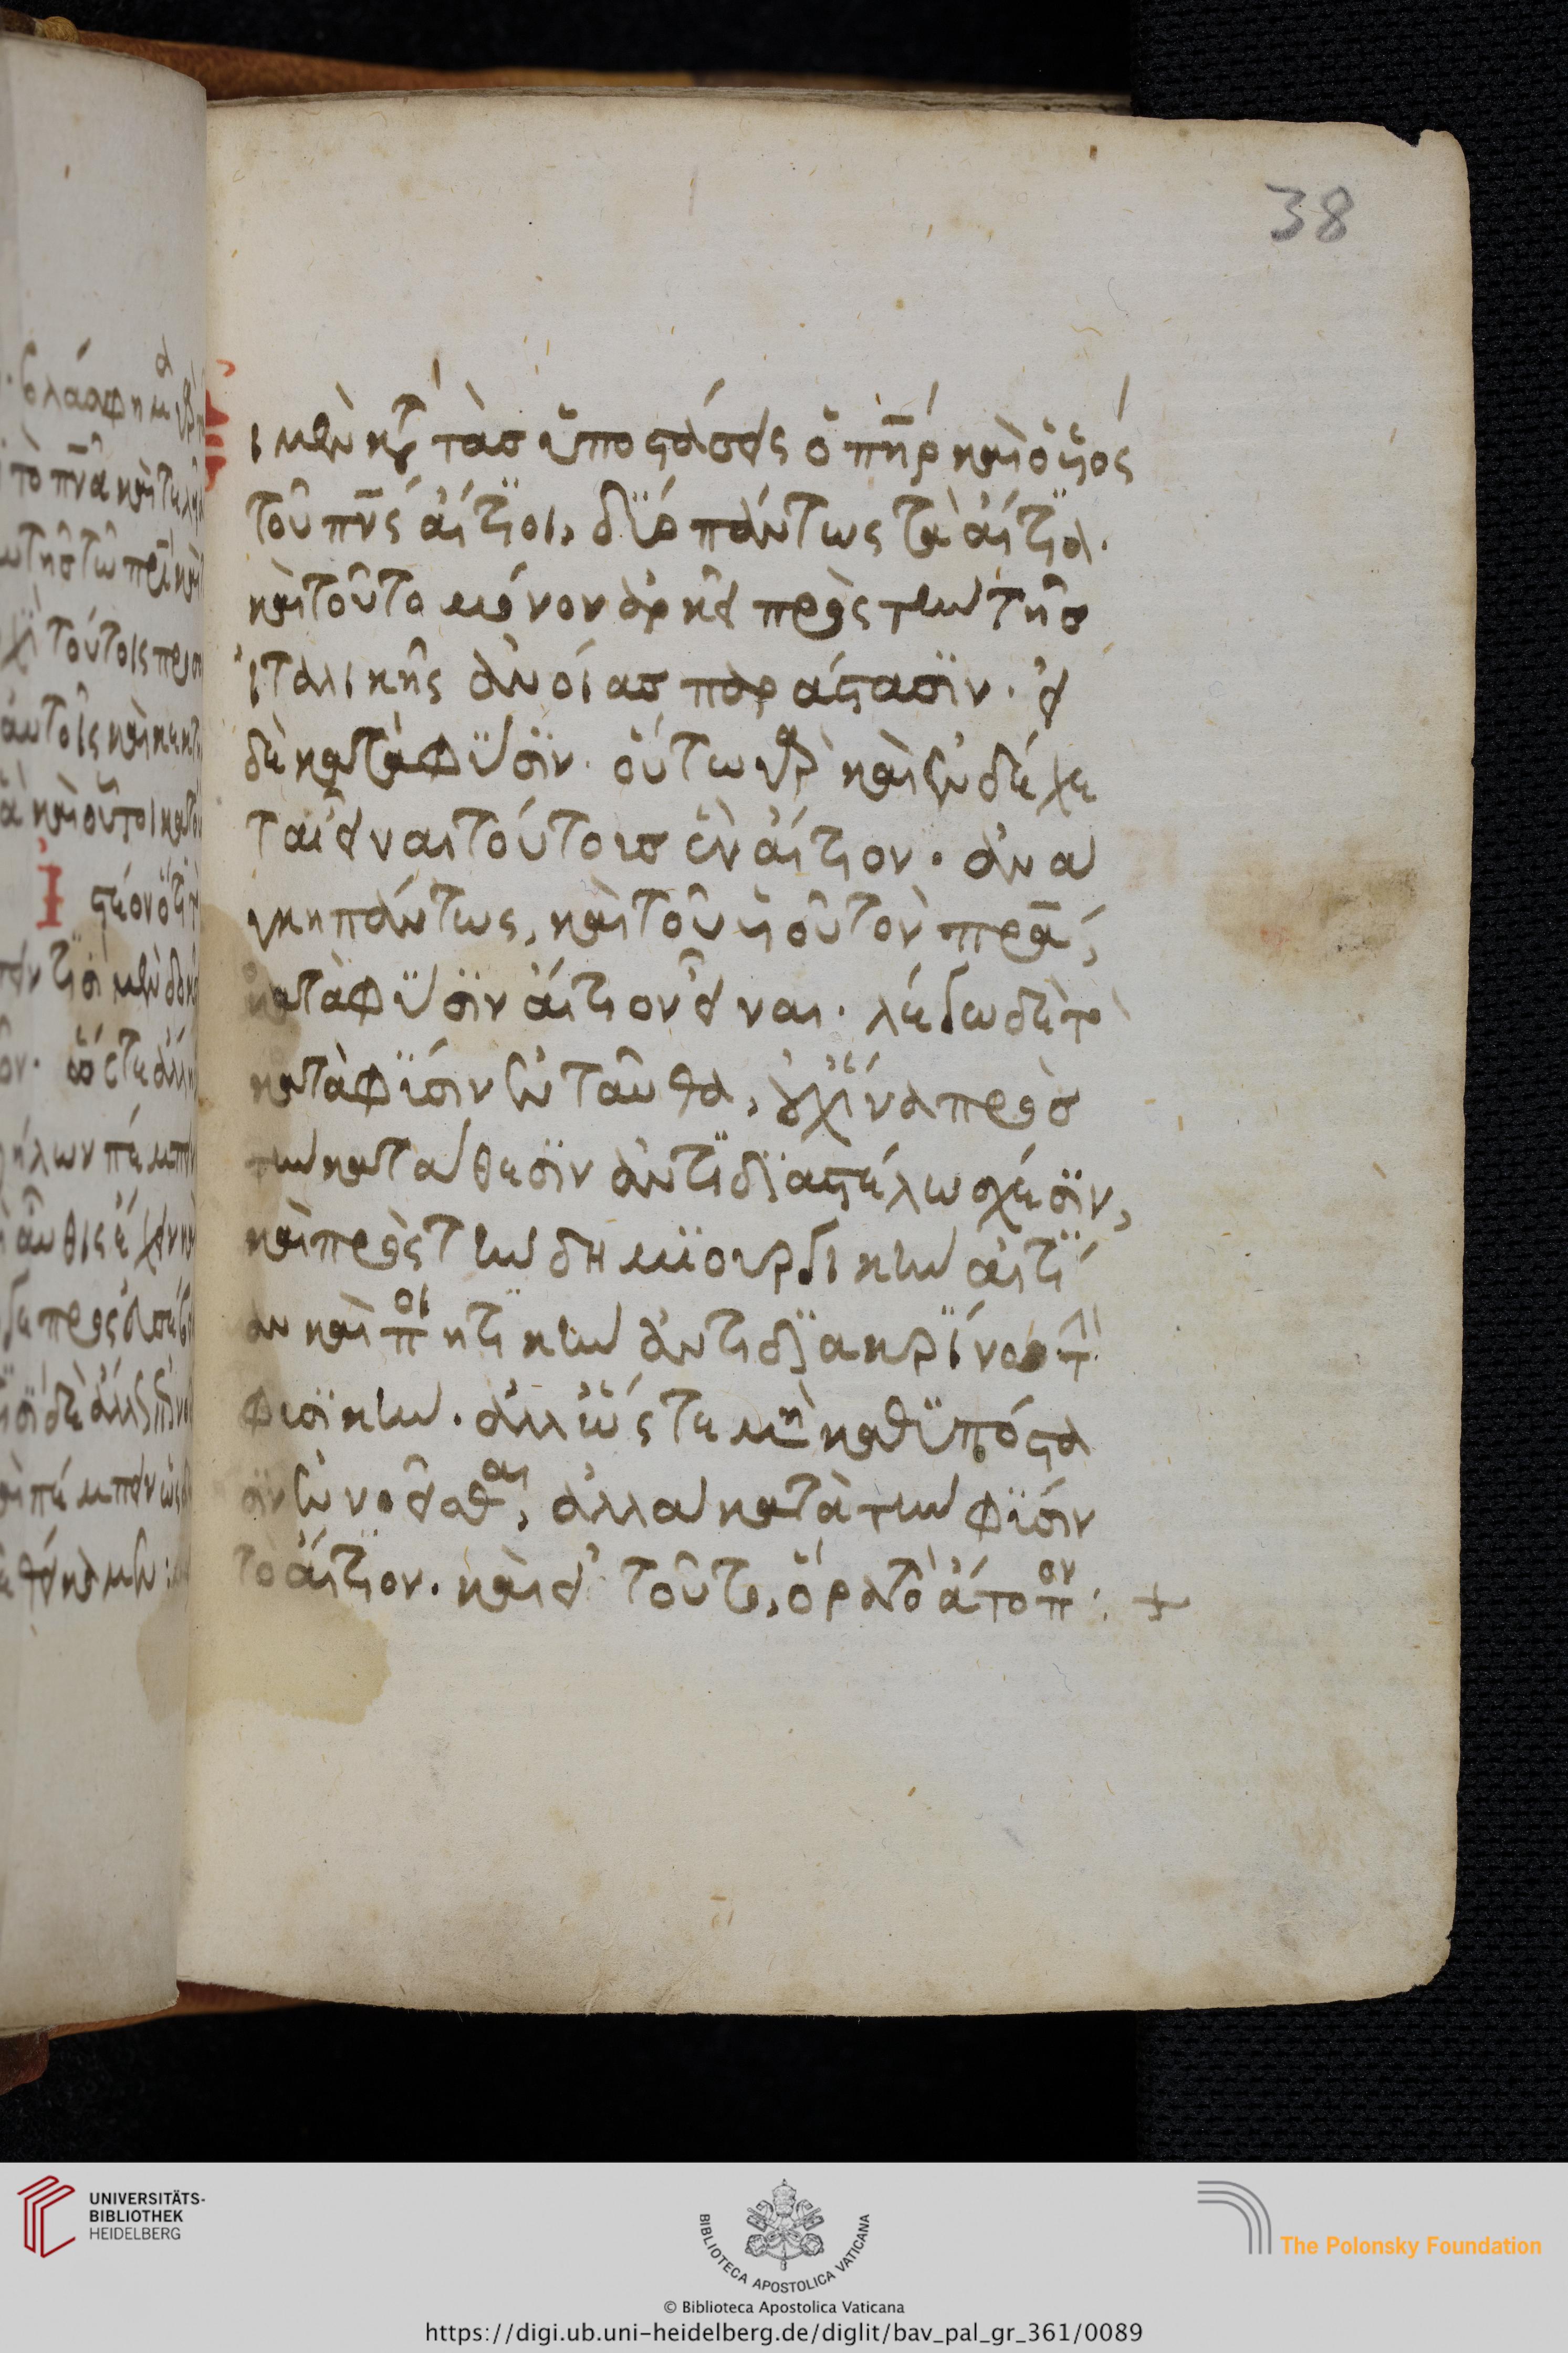 38
ι μὲν κατὰ τὰσ ὑποστάσεις ὁ πηρ καὶ ὁ υἱος
τοῦ πνς ἀίτϊοι, δϊο πάντως τὰ ἀίτϊα.
καὶ τοῦτο μόνον ἀρκεῖ πρὸς τὴν τῆσ
ἰταλικῆς ἀνοίασ παράστασϊν. εἰ
δὲ κατὰ φϋσϊν. οὕτω γὰρ καὶ ἐνδέχε
ται εἶναι τούτοισ ἓν ἀίτιον. ἀνα
γκη πάντως, καὶ τοῦ υἱοῦ τὸν πρα,
κατὰ φϋσϊν ἀίτιον εἶναι. λέγω δὲ τὸ
κατὰ φϋσϊν ἐνταῦθα, οὐχ ἵνα πρὸσ
τὴν κατα θεσϊν ἀντϊδϊαστέλω σχέσϊν,
καὶ πρὸς τὴν δημϊουργικὴν ἀιτϊ
αν καὶ ποιητϊκὴν ἀντιδϊακρίνω τ
φυσϊκὴν. ἀλλ' ὥς τε μὴ καθϋπόστα
σϊν ἐννοεῖσθαι, ἀλλα κατὰ τὴν φϋσϊν
τὸ ἀίτϊον. καὶ εἰ τοῦτο, ὅρα τὸ ἀτοπον : +
UNIVERSITÄTS-
BIBLIOTHEK
HEIDELBERG
BIBLIOTECA APOSTOLICA VATICANA
The Polonsky Foundation
© Biblioteca Apostolica Vaticana
https://digi.ub.uni-heidelberg.de/diglit/bav_pal_gr_361/0089